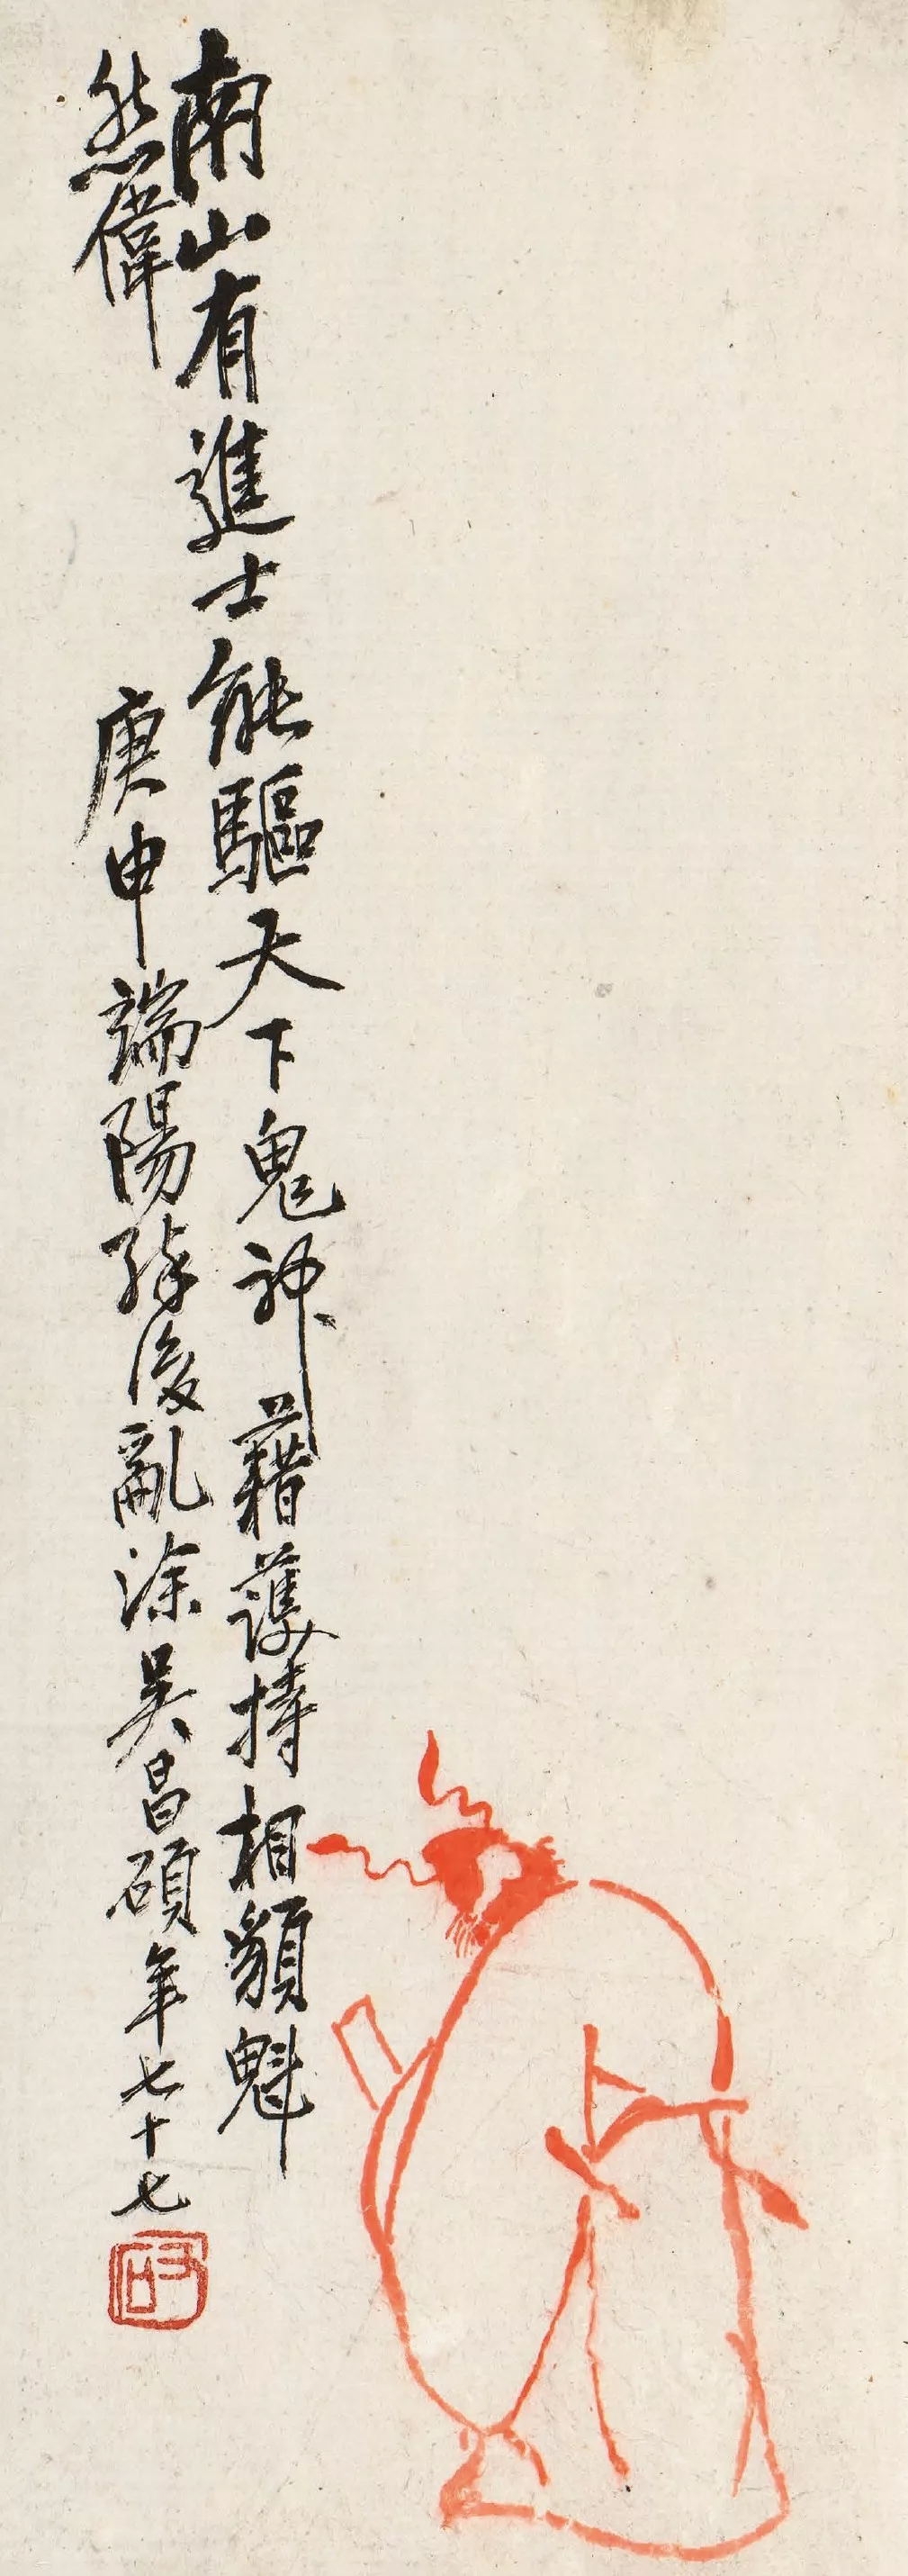 南山有進士能驅天下鬼神藉護持相貌魁
然偉
庚申端陽醉後亂涂吳昌碩年七十七